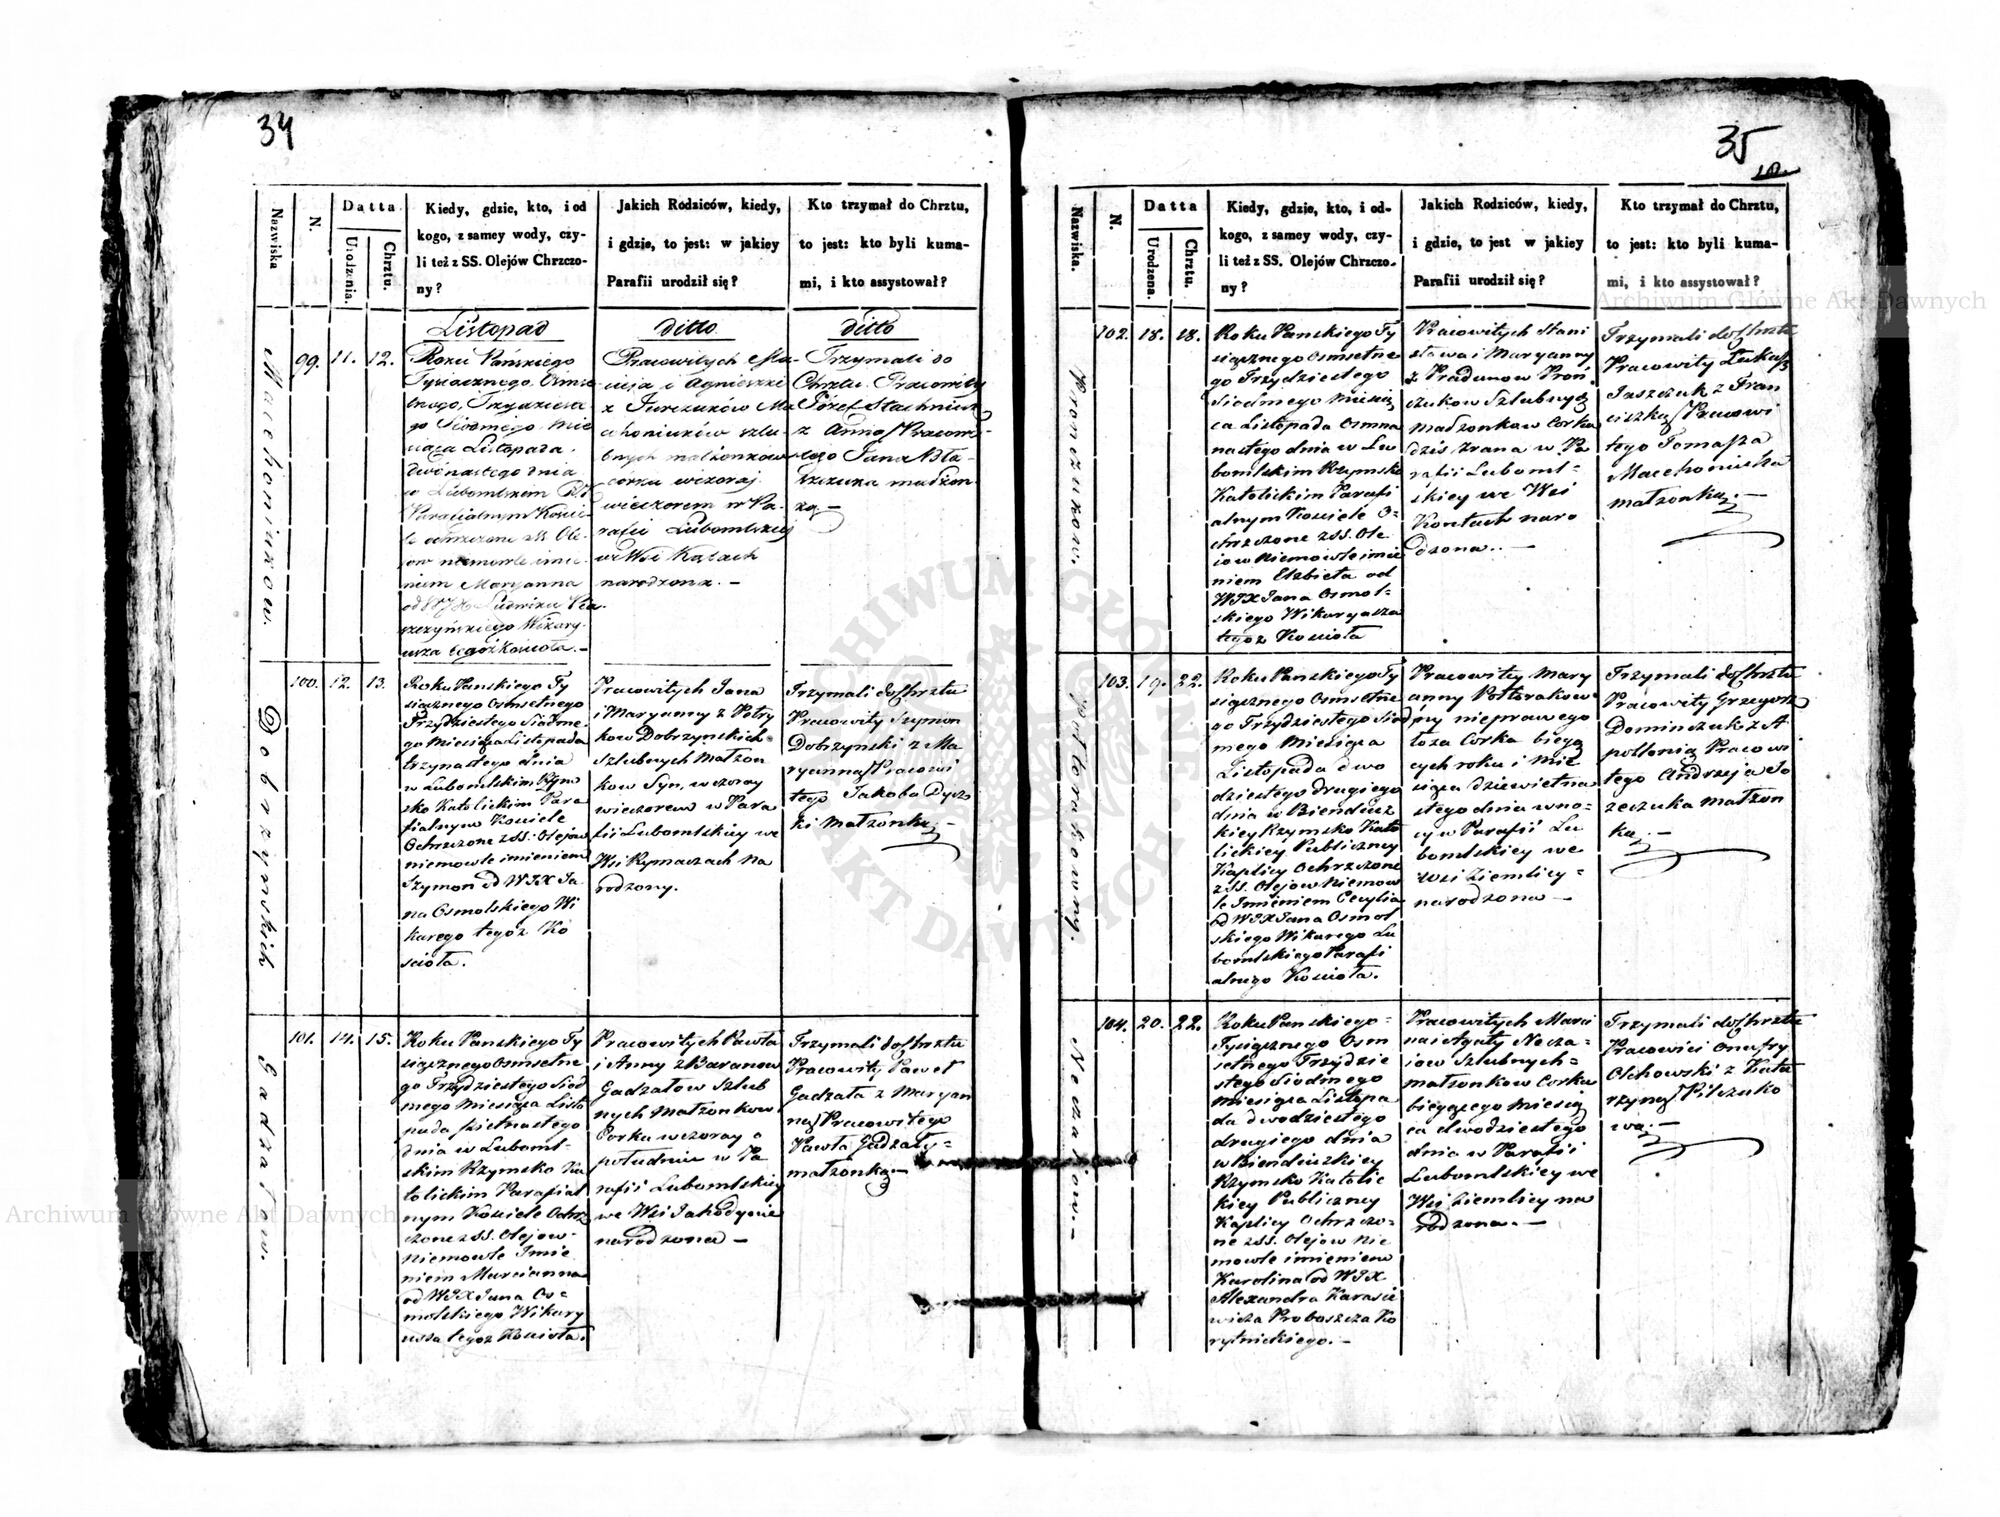 34
Nazwiska
N.
Datta
Urodzenia.
Chrztu.
Kiedy, gdzie, kto, i od
kogo, z samey wody, czy-
li też z SS. Olejów Chrzczo-
ny?
Jakich Rodziców, kiedy,
i gdzie, to jest: w jakiey
Parafii urodził się?
Kto trzymał do Chrztu,
to jest: kto byli kuma-
mi, i kto assystował?
Listopad
ditto
ditto
Macehoniukow.
99.
11.
12.
Roku Pańskiego
Tysiącznego Ośmse
tnego, Trzydzieste
go Siódmego, Mie
siąca Listopada
dwónastego dnia
w Lubomlskim
Parafialnym Kości
le ochrzczone z SS. Ole-
jow niemowle imie
niem Maryanna
od WJX Ludwika
Wikary-
usza tegóż Kościoła.-
Pracowitych
i Agnieszki
z Jurczuków Ma
cehoniuków szlu-
bnych małżonkow
córka wczoraj
wieczorem w Pa-
rafii Lubomlskiey
we Wsi Kątach
narodzona. -
Trzymali do
Chrztu. Pracowity
Józef Stachniuk
z Anną Pracowi-
tego Jana
małżon-
ką.-
Dobrzynskich
100.
12.
13.
Roku Panskiego Ty
siącznego Osmsetnego
Trzydziestego Siodme-
go Miesiąca Listopada
trzynastego dnia
w Lubomlskim Rzym
sko Katolickim Para
fialnym Kosciele
Ochrzczone z SS. Olejow
niemowle imieniem
Szymon od WJX Ja
na Osmolskiego Wi
karego tegoz Ko
scioła.
Pracowitych Jana
i Maryanny z Petry
kow Dobrzynskich-
Szlubnych Małzon
kow Syn, wczoray
wieczorem w Para
fii Lubomlskiey we
Wsi Rymaczach na
rodzony.
Trzymali do Chrztu
Pracowity Szymon
Dobrzynski z Ma
ryanną Pracowi
tego Jakoba Dycz
ki Małzonką.-
Gadzałow.
101.
14.
15.
Roku Panskiego Ty
siącznego Osmsetne
go Trzydziestego Siod
mego Miesiąca Listo
pada pietnastego
dnia w Luboml-
skim Rzymsko Ka
tolickim Parafial
nym Kosciele Ochrz
czone z SS. Olejow-
Niemowle Imie
niem Marcianna
od WJX Jana Os=
molskiego Wikary
usza tegoz Koscioła.
Pracowitych Pawła
i Anny z Baranow
Gadzałow Szlub
nych Małzonkow
Corka wczoray o
południu w Pa
rafii Lubomlskiey
we Wsi Jahodynie
narodzona -
Trzymali do Chrztu
Pracowity Paweł
Gadzała z Maryan
ną Pracowitego
Pawła Gadzały=
małzonką.-
35
Nazwiska.
N.
Datta
Urodzena.
Chrztu.
Kiedy, gdzie, kto, i od-
kogo, z samey wody, czy-
li też z SS. Olejów Chrzczo-
ny?
Jakich Rodziców, kiedy,
i gdzie, to jest w jakiey
Parafii urodził się?
Kto trzymał do Chrztu,
to jest: kto byli kuma-
mi, i kto assystował?
Pronczukow.
102.
18.
18.
Roku Panskiego Ty
siącznego Osmsetne
go Trzydziestego
Siodmego Miesią
ca Listopada Osmna
nastego dnia w Lu
bomlskim Rzymsko
Katolickim Parafi
alnym Kosciele O=
chrzczone z SS. Ole
jow Niemowle imie
niem Elzbieta od
WJX Jana Osmol-
skiego Wikaryusza
tegoz Koscioła
Pracowitych Stani
sława i Maryanny
z Pradunow Pron
czukow Szlubnych
Małzonkow Corka
dzis zrana w Pa
rafii Luboml-
skiey we Wsi
Kontach naro
dzona. -
Trzymali do Chrztu
Pracowity Łukasz
Jaszczuk z Fran
ciszką Pracowi
tego Tomasza
Macehoniuka
małzonką.-
Połtorakowny.
103.
19.
22.
Roku Panskiego Ty
siącznego Osmsetne
go Trzydziestego Siod
mego Miesiąca
Listopada dwo
dziestego drugiego
dnia w Bienduz
kiey Rzymsko Kato
lickiey Publiczney
Kaplicy Ochrzczone
z SS. Olejow Niemow
le Imieniem Cecylia
od WJX Jana Osmol
skiego Wikarego Lu
bomlskiego Parafi
alnego Koscioła.
Pracowity Mary
anny Połtorakow
ny nieprawego
łoza Corka biezą
cych roku i Mie
siąca dziewietna
stego dnia w no=
cy w Parafii Lu
bomlskiey we
Wsi Ziemlicy-
narodzona -
Trzymali do Chrztu
Pracowity Grzegorz
Dominczuk z A
pollonią Pracowi
tego Andrzeja Jo
zeczuka małzon
ką.-
Neczaiow.-
104.
20.
22.
Roku Panskiego-
Tysiącznego Osm
setnego Trzydzie
stego Siodmego
Miesiąca Listopa
da dwodziestego
drugiego dnia
w Bienduzkiey
Rzymsko Katolic
kiey Publiczney
Kaplicy Ochrzczo=
ne z SS. Olejow Nie
mowle imieniem
Karolina od WJX
Alexandra Karasie
wicza Proboszcza Ko
rytnickiego.-
Pracowitych Marci
na i Agaty Necza-
iow Szlubnych=
małzonkow Corka
biezącego Miesią
ca dwodziestego
dnia w Parafii
Lubomlskiey we
Wsi Ziemlicy na
rodzona.-
Trzymali do Chrztu
Pracowici Onufry
Olchowski z Kata
rzyną Pilczuko
wą.-
Archiwum Główne Akt Dawnych
Archiwum Główne Akt Dawnych
ARCHIWUM GŁÓWNE
AKT DAWNYCH